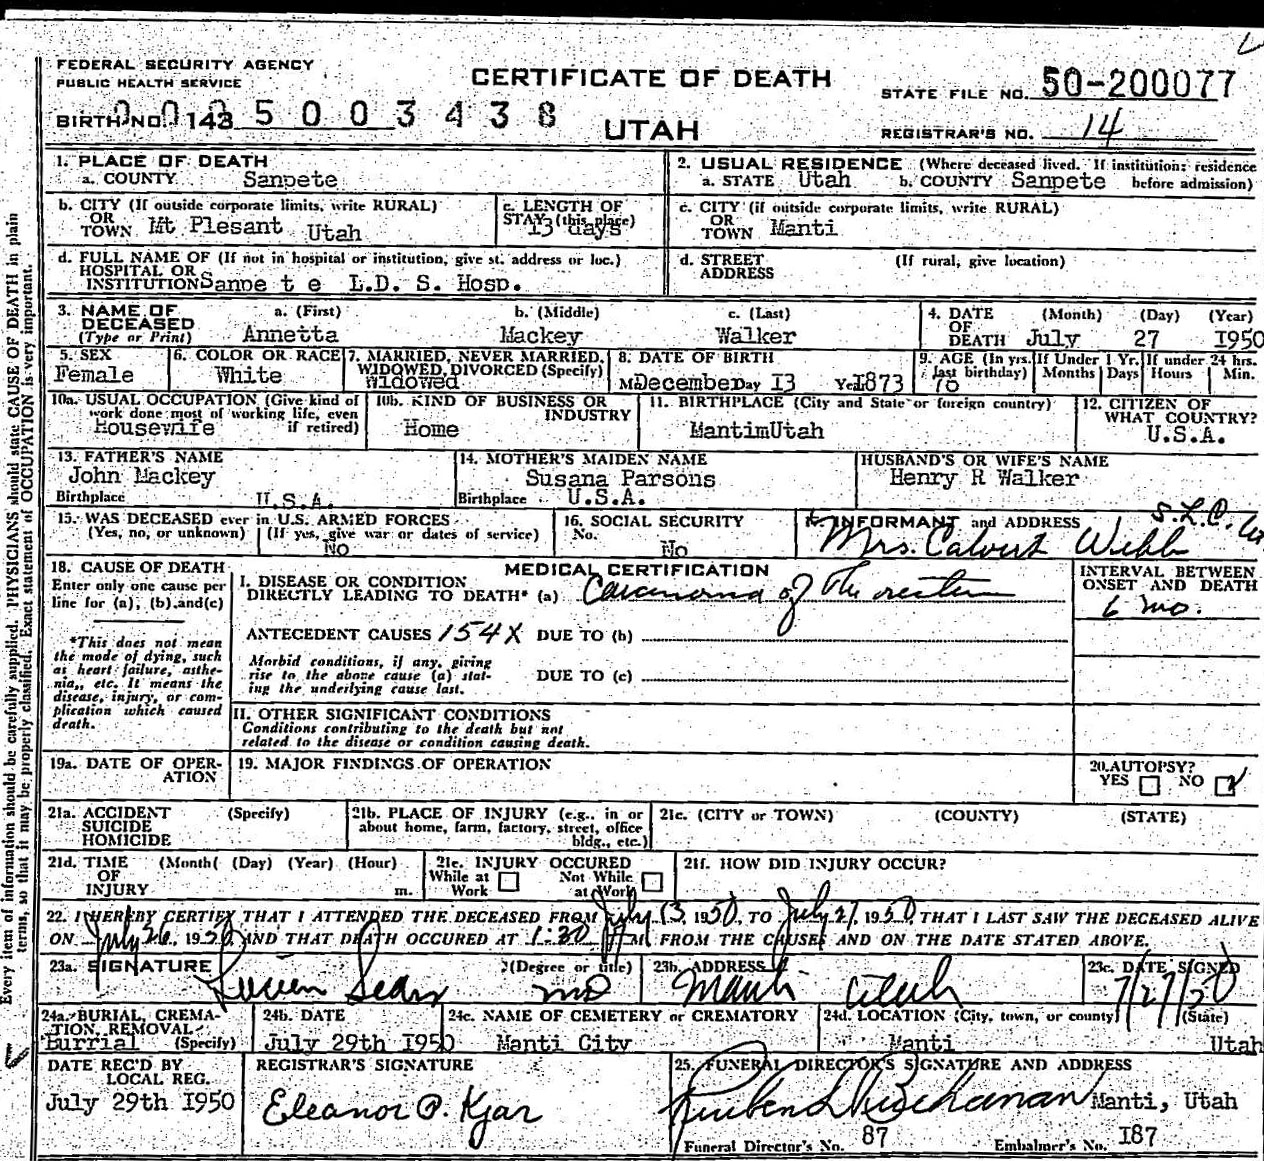 FEDERAL SECURITY AGENCY
PUBLIC HEALTH SERVICE
CERTIFICATE OF DEATH
STATE FILE NO. 50-200077
BIRTH NO. 143 5 0 0 3 4 3 8
UTAH
REGISTRAR'S NO. 14
1. PLACE OF DEATH
a. COUNTY Sanpete
2. USUAL RESIDENCE (Where deceased lived. If institution: residence before admission)
a. STATE Utah b. COUNTY Sanpete
b. CITY (If outside corporate limits, write RURAL)
OR TOWN Mt Plesant Utah
c. LENGTH OF STAY (this place) 13 days
c. CITY (if outside corporate limits, write RURAL)
OR TOWN Manti
d. FULL NAME OF (If not in hospital or institution, give st. address or loc.)
HOSPITAL OR
INSTITUTION Sanpe t e L.D. S. Hosp.
d. STREET ADDRESS (If rural, give location)
3. NAME OF DECEASED (Type or Print)
a. (First) b. (Middle) c. (Last)
Annetta Mackey Walker
4. DATE OF DEATH (Month) (Day) (Year)
July 27 1950
5. SEX
Female
6. COLOR OR RACE
White
7. MARRIED, NEVER MARRIED, WIDOWED, DIVORCED (Specify)
Widowed
8. DATE OF BIRTH
December Day 13 Year 1873
9. AGE (In yrs. last birthday) If Under 1 Yr. Months Days If under 24 hrs. Hours Min.
76
10a. USUAL OCCUPATION (Give kind of work done most of working life, even if retired)
Housewife
10b. KIND OF BUSINESS OR INDUSTRY
Home
11. BIRTHPLACE (City and State or foreign country)
MantimUtah
12. CITIZEN OF WHAT COUNTRY?
U.S.A.
13. FATHER'S NAME
John Mackey
Birthplace U.S.A.
14. MOTHER'S MAIDEN NAME
Susana Parsons
Birthplace U.S.A.
HUSBAND'S OR WIFE'S NAME
Henry R Walker
15. WAS DECEASED ever in U.S. ARMED FORCES
(Yes, no, or unknown) (If yes, give war or dates of service)
No
16. SOCIAL SECURITY No.
No
17. INFORMANT and ADDRESS S.L.C.
Mrs. Calvert Webb
18. CAUSE OF DEATH
Enter only one cause per line for (a), (b), and (c)
*This does not mean the mode of dying, such as heart failure, asthenia,, etc. It means the disease, injury, or complication which caused death.
MEDICAL CERTIFICATION
I. DISEASE OR CONDITION
DIRECTLY LEADING TO DEATH* (a) Carcinoma of the rectum
INTERVAL BETWEEN ONSET AND DEATH
6 mo.
ANTECEDENT CAUSES 154X DUE TO (b)
Morbid conditions, if any, giving rise to the above cause (a) stating the underlying cause last.
DUE TO (c)
II. OTHER SIGNIFICANT CONDITIONS
Conditions contributing to the death but not
related to the disease or condition causing death.
19a. DATE OF OPERATION
19. MAJOR FINDINGS OF OPERATION
20. AUTOPSY?
YES NO
21a. ACCIDENT SUICIDE HOMICIDE (Specify)
21b. PLACE OF INJURY (e.g., in or about home, farm, factory, street, office bldg., etc.)
21c. (CITY or TOWN) (COUNTY) (STATE)
21d. TIME OF INJURY (Month( (Day) (Year) (Hour) m.
21e. INJURY OCCURED
While at Work Not While at Work
21f. HOW DID INJURY OCCUR?
22. I HEREBY CERTIFY THAT I ATTENDED THE DECEASED FROM July 13, 1950, TO July 27, 1950, THAT I LAST SAW THE DECEASED ALIVE
ON July 26, 1950 AND THAT DEATH OCCURED AT 1:30 M. FROM THE CAUSES AND ON THE DATE STATED ABOVE.
23a. SIGNATURE (Degree or title)
Lucien Sears MD
23b. ADDRESS
Manti Utah
23c. DATE SIGNED
7/27/50
24a. BURIAL, CREMATION, REMOVAL (Specify)
Burrial
24b. DATE
July 29th 1950
24c. NAME OF CEMETERY or CREMATORY
Manti City
24d. LOCATION (City, town, or county) (State)
Manti Utah
DATE REC'D BY LOCAL REG.
July 29th 1950
REGISTRAR'S SIGNATURE
Eleanor P. Kjar
25. FUNERAL DIRECTOR'S SIGNATURE AND ADDRESS
Buchanan Manti, Utah
Funeral Director's No. 87 Embalmer's No. 187
Every item of information should be carefully supplied. PHYSICIANS should state CAUSE OF DEATH in plain
terms, so that it may be properly classified. Exact statement of OCCUPATION is very important.